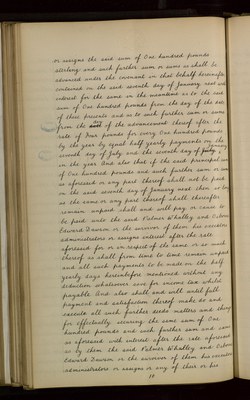 or assigns the said sum of One hundred pounds
sterling and such further sum or sums as shall be
advanced under the covenant in that behalf hereinafter
contained on the said seventh day of January next with
interest for the same in the meantime as to the said
sum of One hundred pounds from the day of the date
of these presents and as to such further sum or sums
from the date of the advancement thereof after the
rate of Four pounds for every One hundred pounds
by the year by equal half yearly payments on the
seventh day of July and the seventh day of
in the year And also that if the said principal sum
of One hundred pounds and such further sum or sums
as aforesaid or any part thereof shall not be paid
on the said seventh day of January next then so long
as the same or any part thereof shall thereafter
remain unpaid shall and will pay or cause to
be paid unto the said Palmer Whalley and
Edward or the survivor of them his executors
administrators or assigns interest after the rate
aforesaid for or in respect of the same or so much
thereof as shall from time to time remain unpaid
and all such payments to be made on the half
yearly days hereinbefore mentioned without any
deduction whatsoever save for income tax whilst
payable And also shall and will until full
payment and satisfaction thereof make do and
execute all such further deeds matters and things
for effectually securing the same sum of One
hundred pounds and such further sum and sums
as aforesaid with interest after the rate aforesaid
as by them the said Palmer Whalley and
Edward or the survivor of them his executors
administrators or assigns or any of their or his